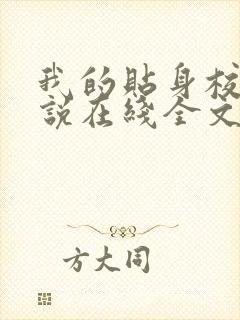 我的貼身校
說在綫全文
方大同